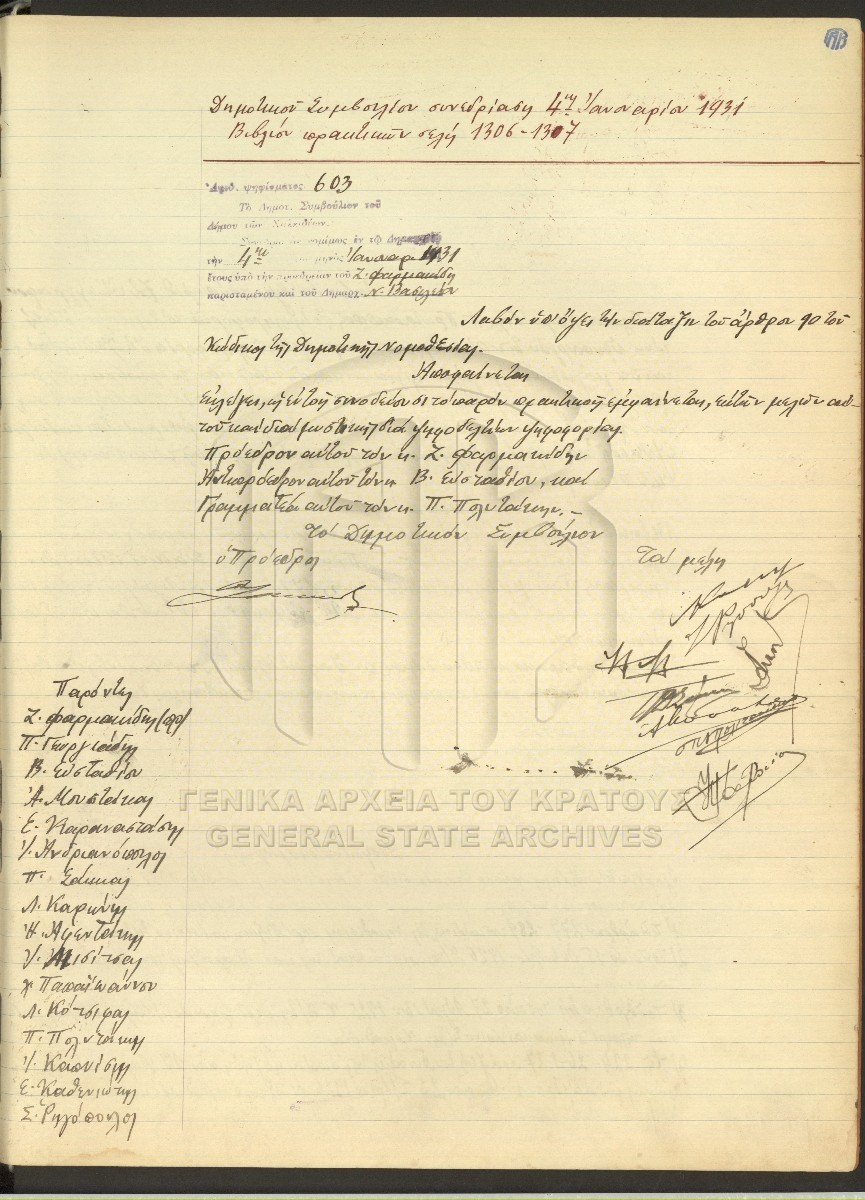 Δημοτικοῦ Συμβουλίου συνεδρίασις 4ης Ἰανουαρίου 1931
Βιβλίον πρακτικῶν σελίς 1306-1307
Ἀριθ. ψηφίσματος 603
Τὸ Δημοτ. Συμβούλιον τοῦ
Δήμου τῶν Χαλκιδέων.
Συνελθὸν νομίμως ἐν τῷ
τὴν 4ην μηνὸς Ἰανουαρ 1931
ἔτους ὑπὸ τὴν προεδρείαν τοῦ Ζ. Φαρμακίδη
παρισταμένου καὶ τοῦ Δημάρχ. Ν. Βασιλείου
Λαβὸν ὑπ' ὄψει τὴν διάταξιν τοῦ ἄρθρου 90 τοῦ
Κώδικος τῆς Δημοτικῆς Νομοθεσίας.
Ἀποφαίνεται
Ἐκλέγει, ὡς ἐκ τοῦ συνοδεύοντος τὸ παρὸν πρακτικοῦ ἐμφαίνεται, ἐκ τῶν μελῶν αὐ-
τοῦ καὶ διὰ μυστικῆς διὰ ψηφοδελτίων ψηφοφορίας
Πρόεδρον αὐτοῦ τὸν κ. Ζ. Φαρμακίδην
Ἀντιπρόεδρον αὐτοῦ τὸν κ. Β. Εὐσταθίου, καὶ
Γραμματέα αὐτοῦ τὸν κ. Π. Πολυτάκην. –
Τὸ Δημοτικὸν Συμβούλιον
ὁ Πρόεδρος Τὰ μέλη
Παρόντες
Ζ. Φαρμακίδης (πρ)
Π. Γεωργιάδης
Β. Εὐσταθίου
Ἀ. Μουστάκας
Ε. Καραναστάσης
Ἰ. Ἀνδριανόπουλος
Π. Σάκκας
Λ. Καρκάνης
Ἠ. Ἀφεντάκης
Ἰ. Μισίτσας
Χ. Παπαϊωάννου
Λ. Κότσιφας
Π. Πολυτάκης
Ἰ. Κάπνισης
Ε. Καθενιώτης
Σ. Ῥηγόπουλος
ΓΕΝΙΚΑ ΑΡΧΕΙΑ ΤΟΥ ΚΡΑΤΟΥΣ
GENERAL STATE ARCHIVES